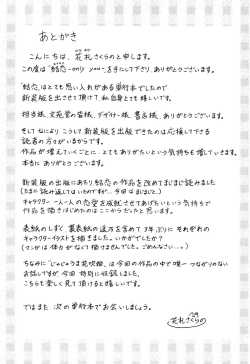 あとがき
こんにちは、花札さくらのと申します。
この度は「結恋
をして下さり、ありがとうございます。
結恋はとても思い入れがある単行本でしたので
新装版を出させて頂けて、私自身とても嬉しいです。
担当様、文苑堂の皆様、デザイナー様、書店様、ありがとうございます。
そしてなにより、こうして新装版を出版できたのは応援して下さる
読者の方々がいるからです。
作品が増えていくごとに、とてもありがたいという気持ちも増しています。
本当にありがとうございます。
新装版の出版にあたり結恋の作品を改めてまじまじ読みました
(たまに読み返してはいるのですが)。今回はまじまじと!
キャラクター一人一人の恋愛を成就させてあげたいという気持ちで
作品を描きはじめたのはここからだったなと
思いました。
表紙のしずく、裏表紙の遠方を含めて7年ぶりにそれぞれの
キャラクターイラストを描きました。いかがでしたか?
ちなみに「じゃじゃうま花吹雪」は今回の作品の中で唯一つながりのない
お話ですが、今回特別に収録しました。
こちらも楽しく見て頂けると嬉しいです。
ではまた次の単行本でお会いしましょう。
花札さくらの